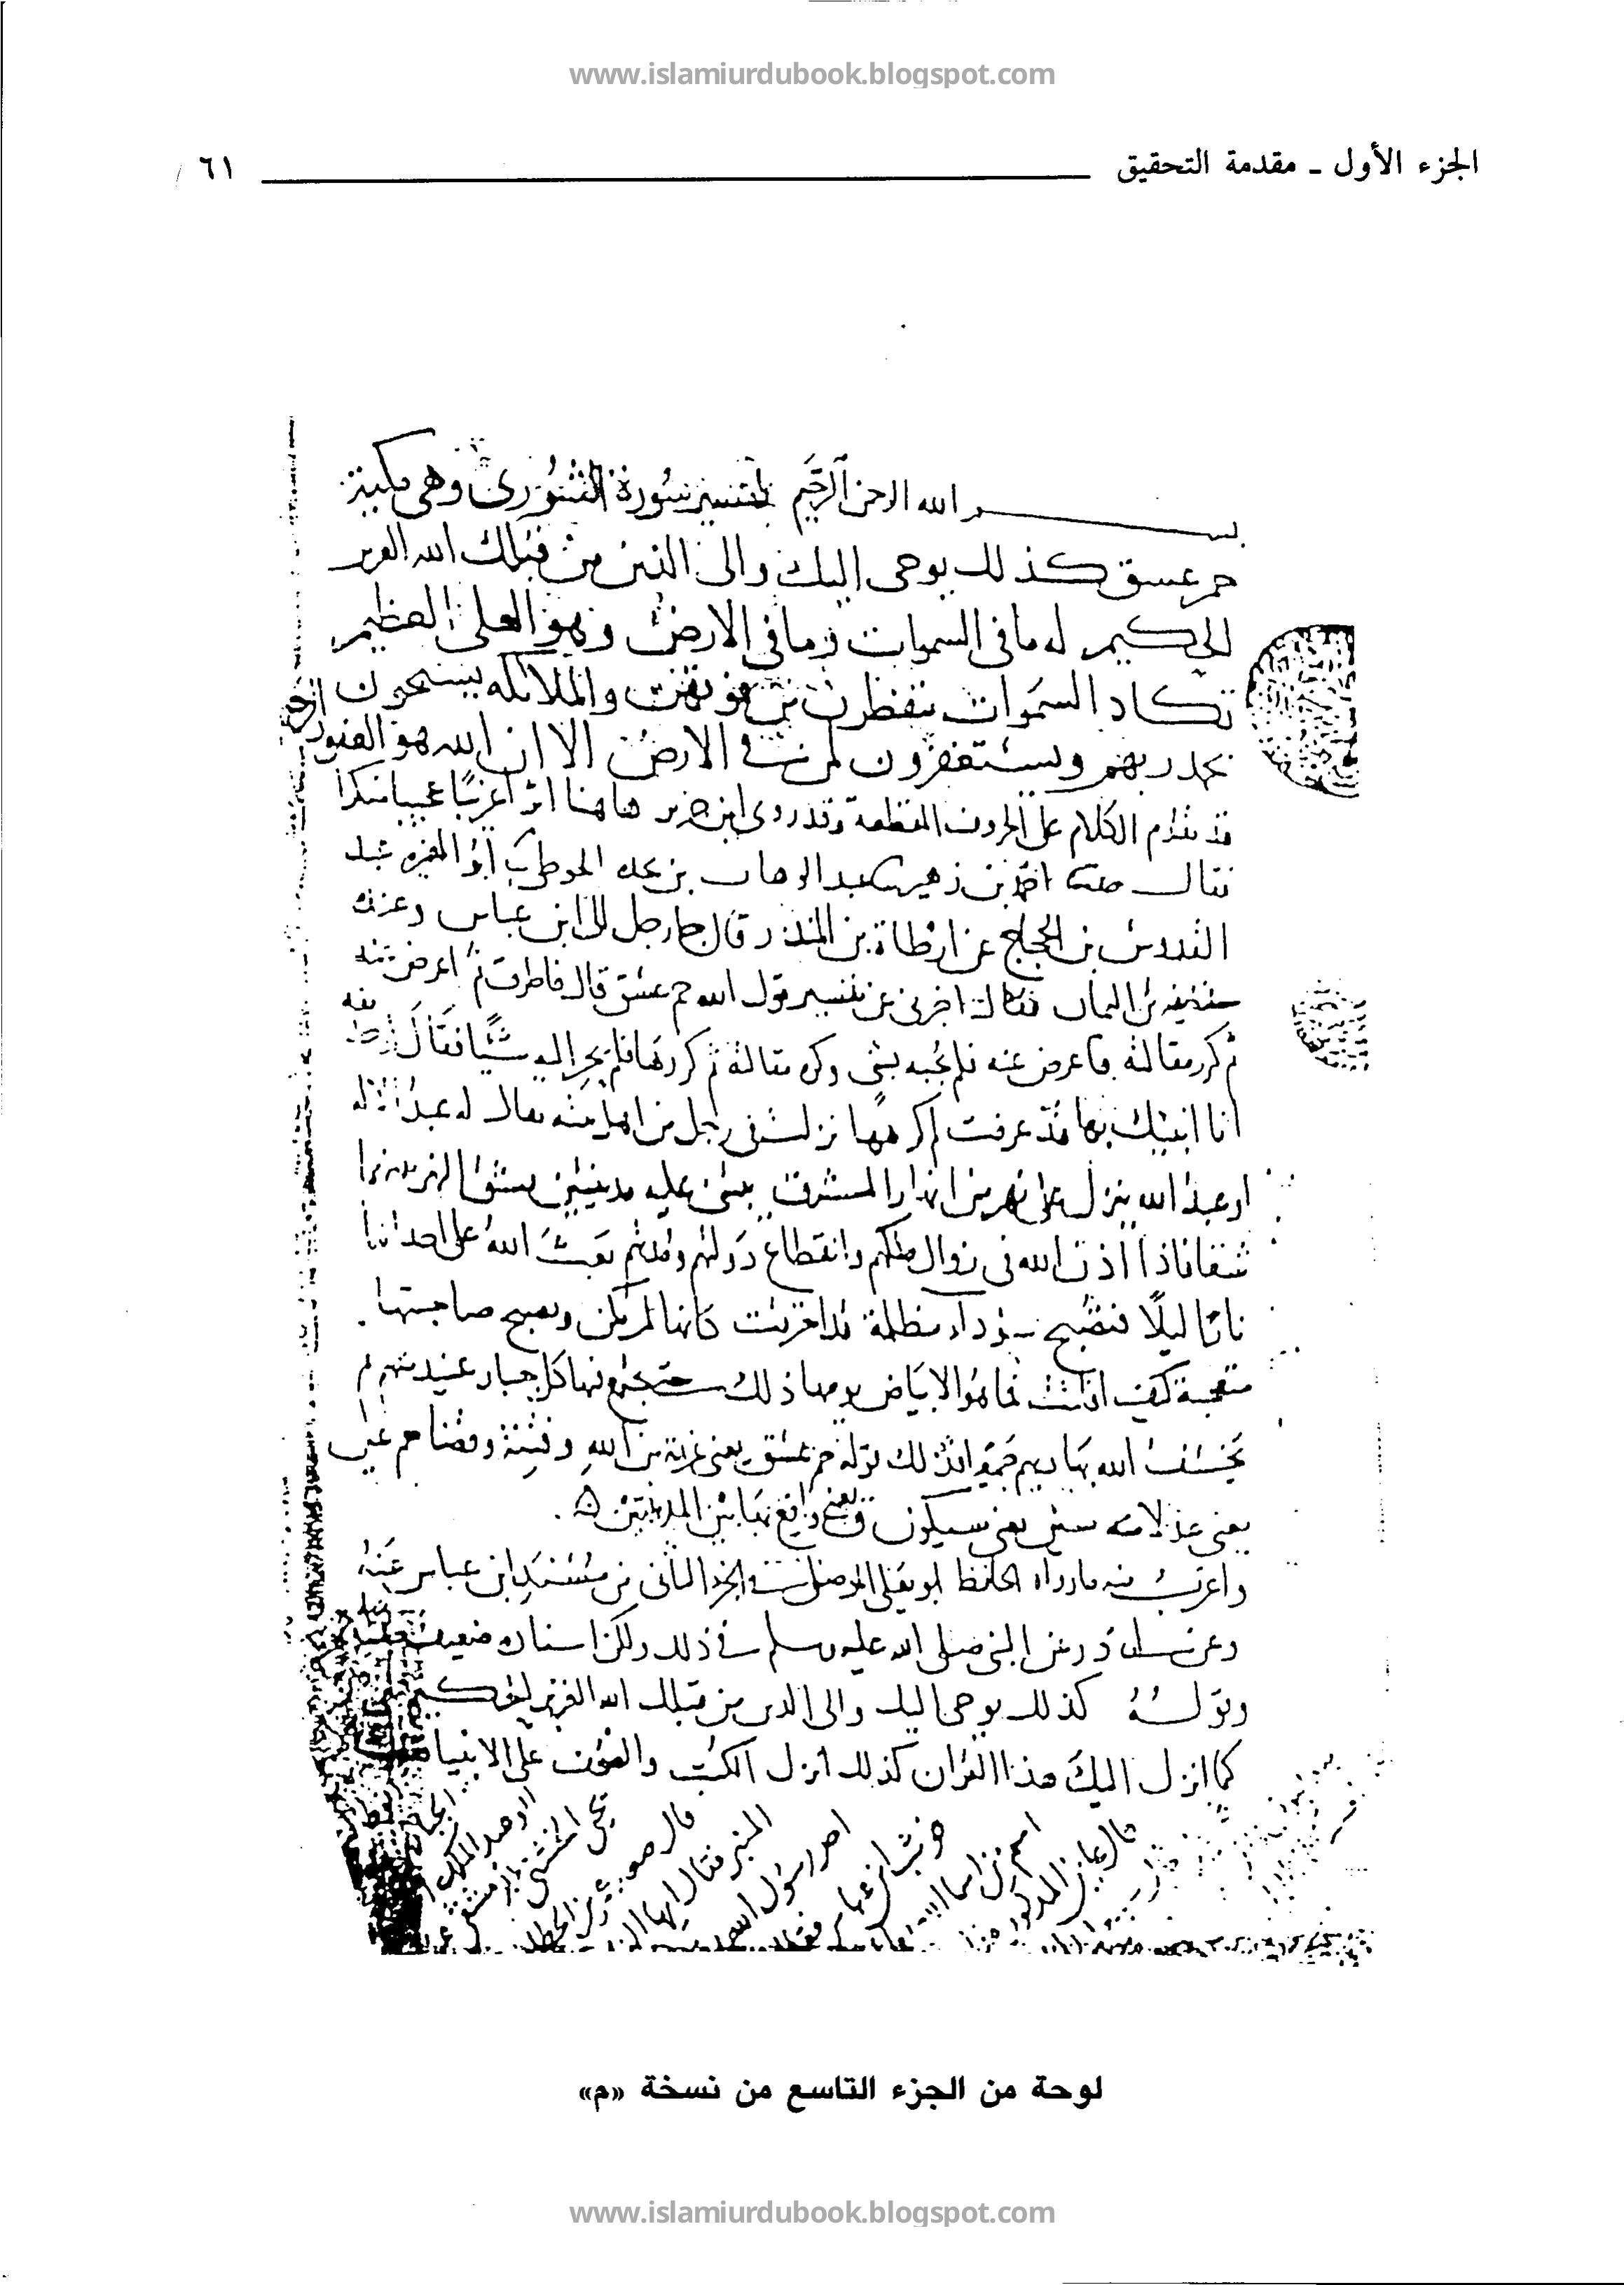 www.islamiurdubook.blogspot.com
الجزء الأول ـ مقدمة التحقيق ٦١
بسم الله الرحمن الرحيم تفسير سورة الشورى وهى مكية
حم عسق كذلك يوحى اليك والى الذين من قبلك الله العزيز
الحكيم له ما فى السموات وما فى الارض وهو العلى العظيم
تكاد السموات يتفطرن من فوقهن والملائكه يسبحون
بحمد ربهم ويستغفرون لمن فى الارض الا ان الله هو الغفور الرحيم
قد تقدم الكلام على الحروف المقطعة وقد روى ابن جرير هاهنا اثرا غريبا عجيبا منكرا
فقال احمد بن زهير عبد الوهاب بن نجده الحوطى ابو المغيره عبد
القدوس بن الحجاج عن ارطاة بن المنذر قال جا رجل الى ابن عباس وعنده
حذيفه بن اليمان فقال اخبرنى عن تفسير قول الله حم عسق قال فاطرق ثم اعرض عنه
ثم كرر مقالته فاعرض عنه فلم يجبه بشى وكره مقالته ثم كررها فلم يحر اليه شيئا فقال حذيفه
انا انبيك بها قد عرفت لم كرهها نزلت فى رجل من اهل بيته يقال له عبد الاله
او عبد الله ينزل على نهر من انهار المشرق يبنى عليه مدينتين يشق النهر بينهما
شقا فاذا اذن الله فى زوال ملكهم وانقطاع دولتهم ومدتهم بعث الله على احداهما
نارا ليلا فتصبح سوداء مظلمة قد احترقت كانها لم تكن وتصبح صاحبتها
متعجبة كيف افلتت فما هو الا بياض يومها ذلك حتى يجتمع فيها كل جبار عنيد منهم ثم
يخسف الله بها وبهم جميعا فذلك قوله حم عسق يعنى عزيمة من الله وفتنة وقضا حم عين
يعنى عدلا منه سين يعنى سيكون ق يعنى واقع بهاتين المدينتين
واغرب منه ما رواه الحافظ ابو يعلى الموصلى فى الجزء الثانى من مسند ابن عباس
وعن ابى ذر عن النبى صلى الله عليه وسلم فى ذلك ولكن اسناده ضعيف
وقوله كذلك يوحى اليك والى الذين من قبلك الله العزيز الحكيم
كما انزل اليك هذا القران كذلك انزل الكتب والصحف على الانبيا
لوحة من الجزء التاسع من نسخة «م»
www.islamiurdubook.blogspot.com